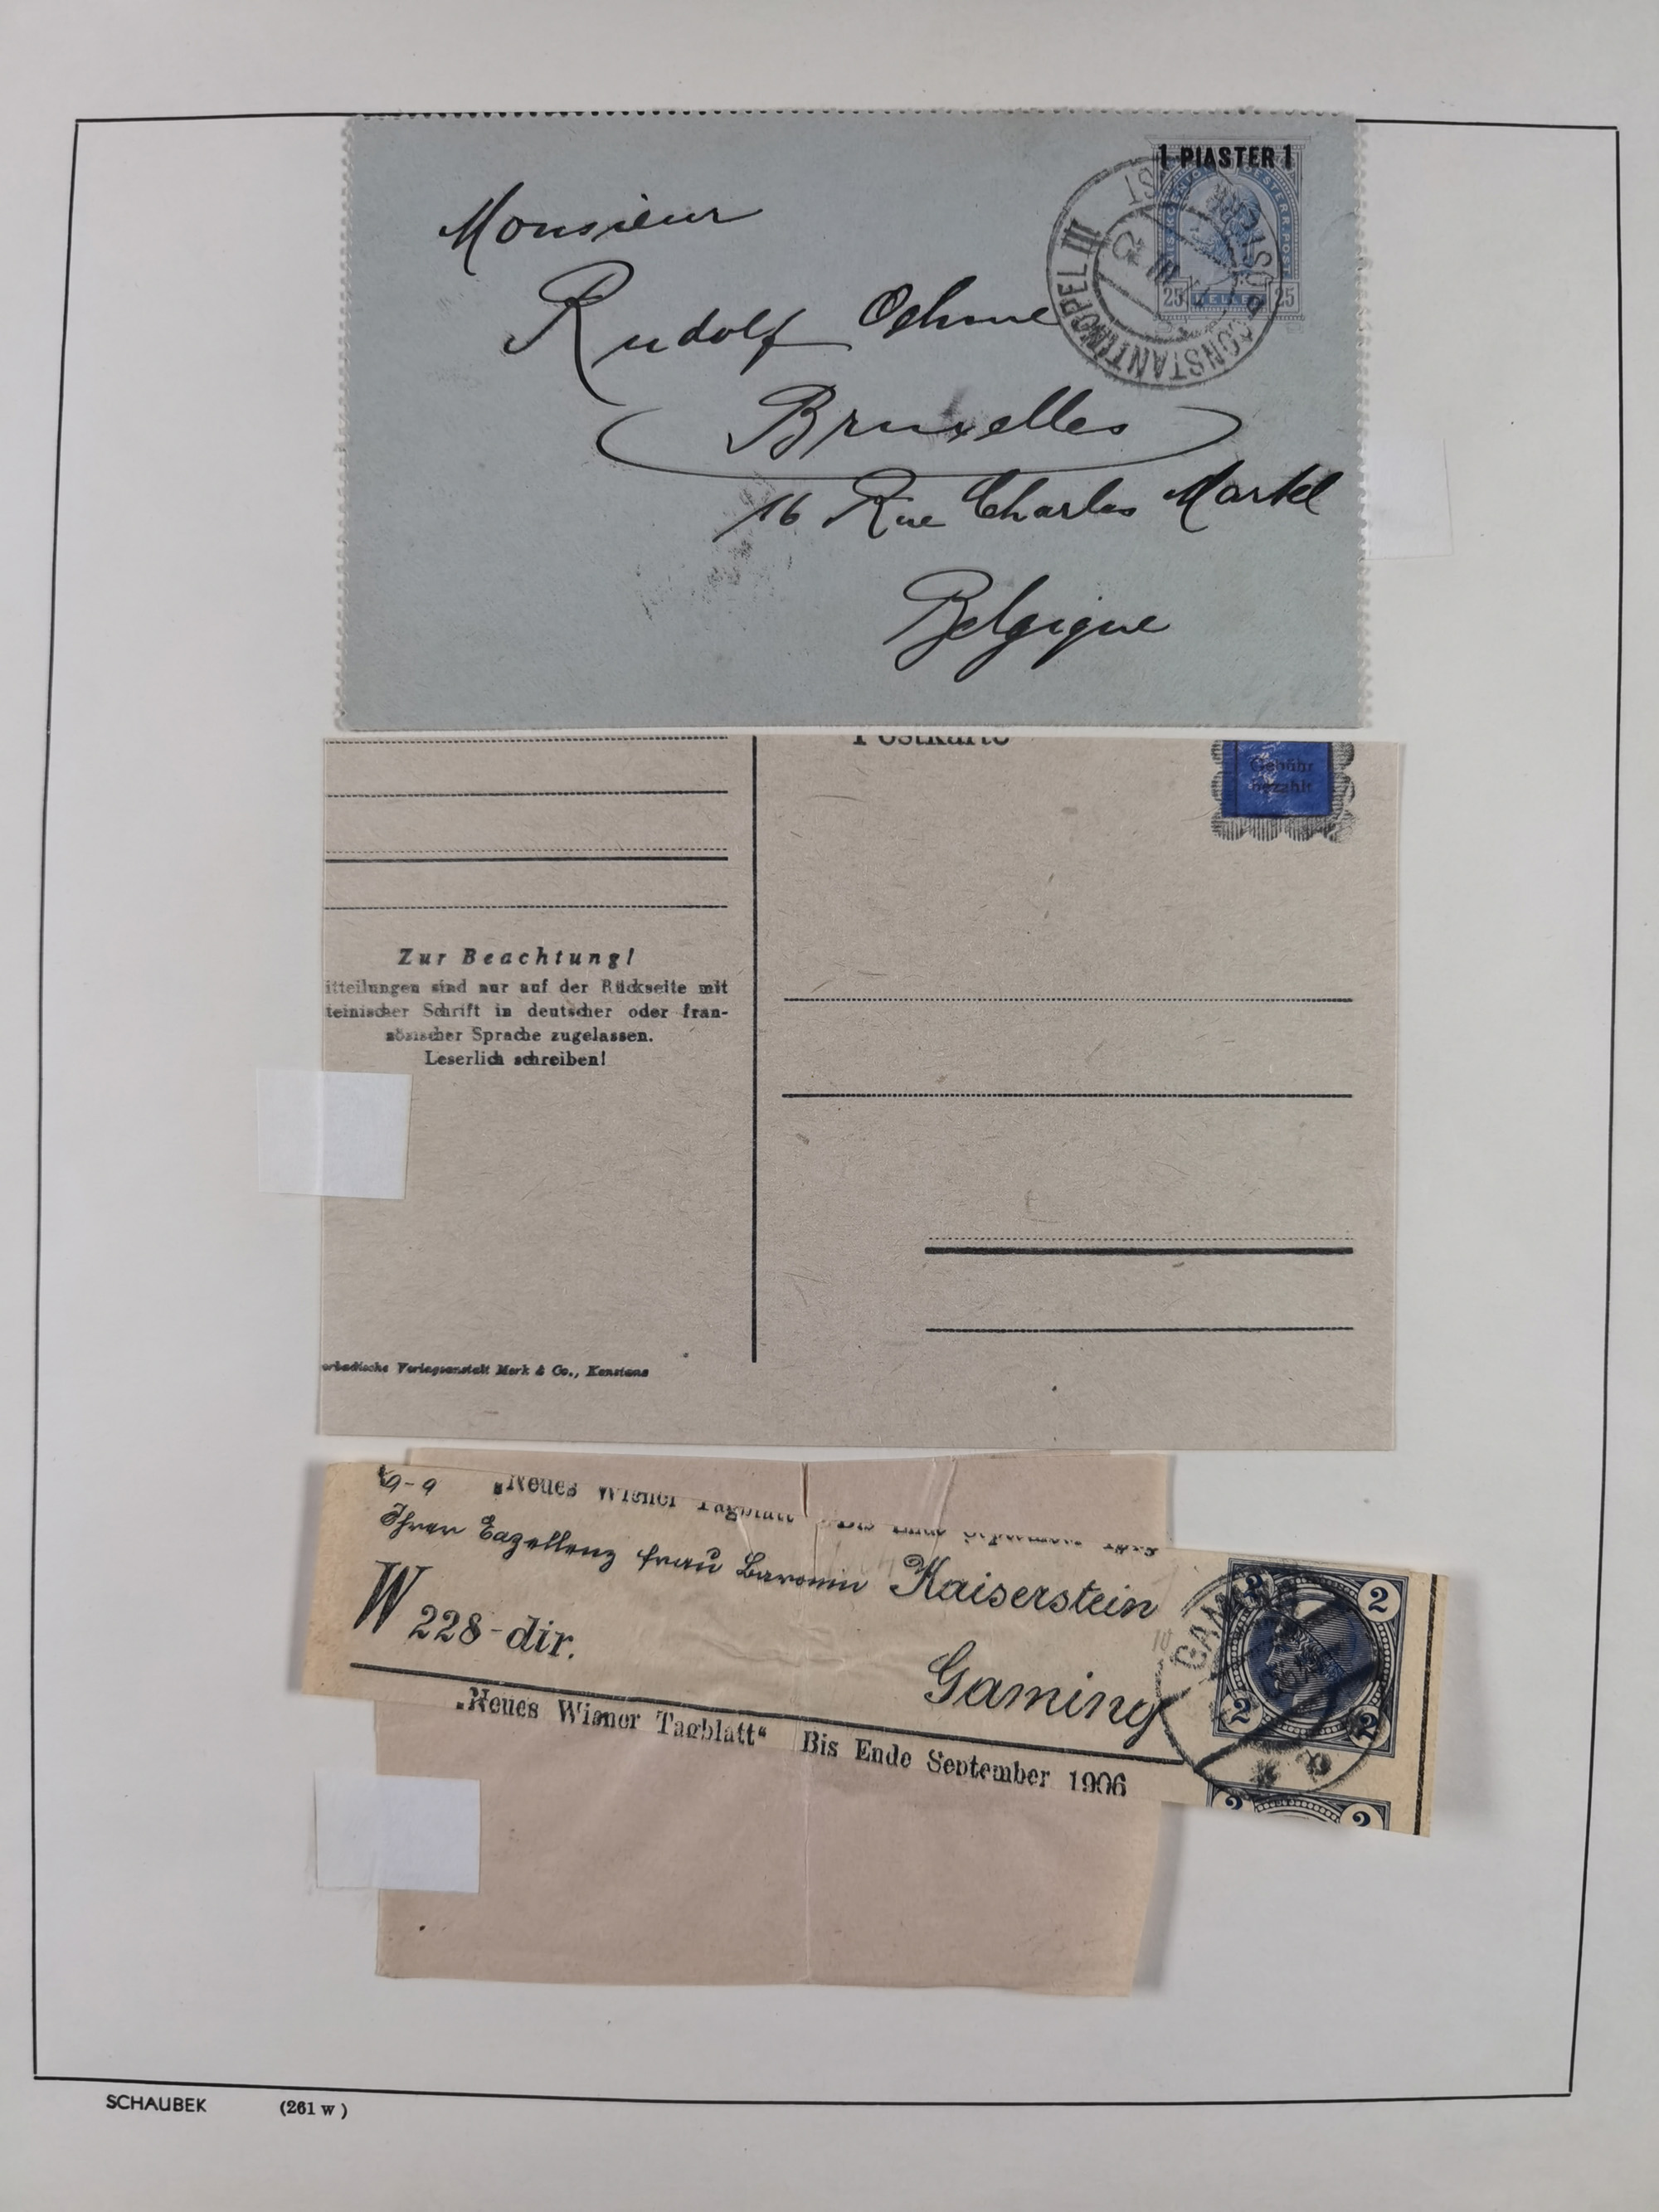 1 PIASTER 1
25 HELLER 25
CONSTANTINOPEL III
Monsieur
Rudolf Oehme
Bruxelles
16 Rue Charles Martel
Belgique
Postkarte
Gebühr
Bezahlt
Zur Beachtung!
itteilungen sind nur auf der Rückseite mit
teinischer Schrift in deutscher oder fran-
zösischer Sprache zugelassen.
Leserlich schreiben!
orbadische Verlagsanstalt Merk & Co., Konstanz
9-9
„Neues Wiener Tagblatt“ Bis Ende September
Ihrer Exzellenz Frau Baronin Kaiserstein
W 228-dir.
Gaming
„Neues Wiener Tagblatt“ Bis Ende September 1906
GAMING
2 2
2 2
2 2
SCHAUBEK (261 w)